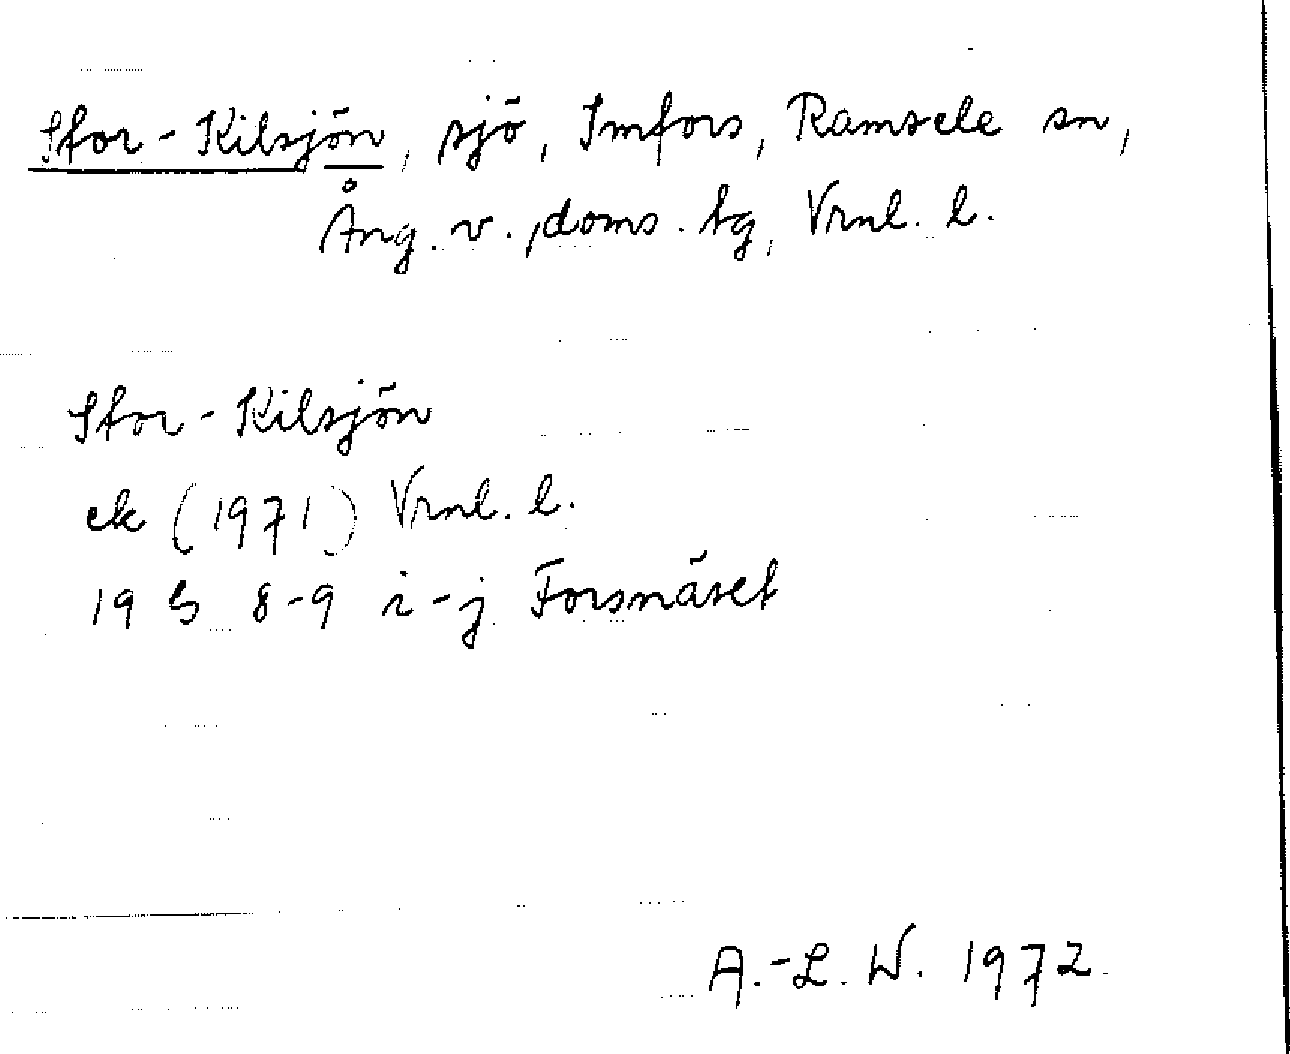 Stor-Kilsjön, sjö, Imfors, Ramsele sn,
Ång. v. , doms. tg, Vrnl. l.
Stor-Kilsjön
ek (1971) Vrnl. l.
19 G 8-9 i-j Forsnäset
A.-L. W. 1972